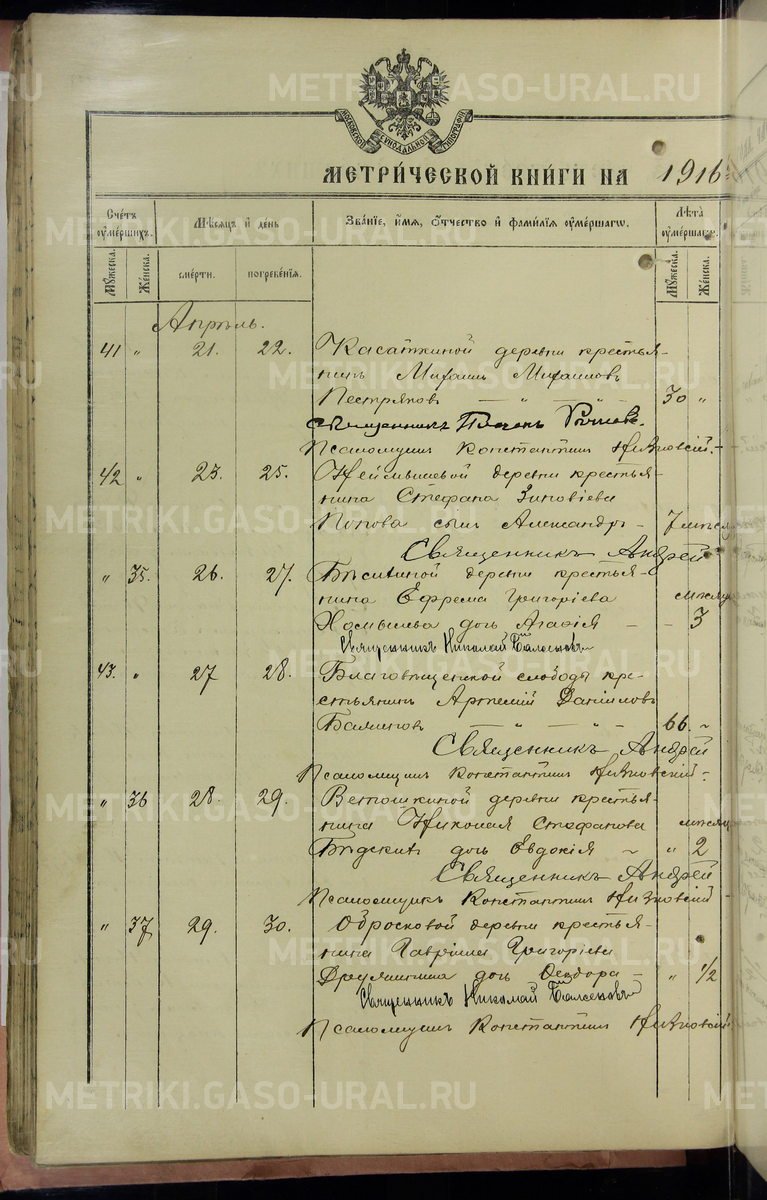 METRIKI.GASO-URAL.RU
МОСКОВСКОЙ СѴНОДАЛЬНОЙ ТИПОГРАФІИ
МЕТРИ́ЧЕСКОЙ КНИ́ГИ НА 1916
Сче́тъ ᲂуме́ршихъ. Мѣ́сяцъ и҆ де́нь Зва́нїе, и҆́мя, ѻ҆́тчество и҆ фами́лїя ᲂуме́ршагѡ. Лѣ́та ᲂуме́ршагѡ.
Му́жеска. Же́нска. сме́рти. погребе́нїя. Му́жеска. Же́нска.
Апрѣль.
41 " 21. 22. Касаткиной деревни крестья-
нинъ Михаилъ Михаиловъ
Пестряковъ — " — " — 30 "
священникъ
Псаломщикъ Константинъ
42 " 23. 25. деревни крестья-
нина Стефана Зиновіева
Попова сынъ Александръ - 7 мѣсяц
Священникъ Андрей
" 35. 26. 27. деревни крестья-
нина Ефрема Григоріева мѣсяц
Хомышева дочь Агафія — — 3
Священникъ Николай
43. " 27 28. Благовѣщенской слободы кре-
стьянинъ Артемій Даніиловъ
— " — " — 66. "
Священникъ Андрей
Псаломщикъ Константинъ
" 36 28. 29. Ветошкиной деревни крестья-
нина Николая Стефанова мѣсяц
дочь Евдокія — " 2
Священникъ Андрей
Псаломщикъ Константинъ
" 37 29. 30. Обросковой деревни крестья-
нина Гавріила Григоріева
дочь Ѳеодора — " 1/2
Священникъ Николай
Псаломщикъ Константинъ